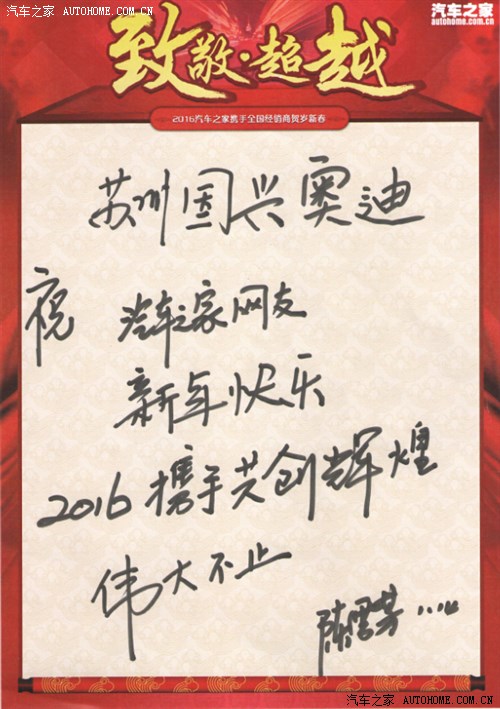 汽车之家 AUTOHOME.COM.CN
汽车之家
autohome.com.cn
致敬·超越
2016汽车之家携手全国经销商贺岁新春
苏州国兴奥迪
祝 汽车之家网友
新年快乐
2016携手共创辉煌
伟大不止
陈雪芳
汽车之家 AUTOHOME.COM.CN